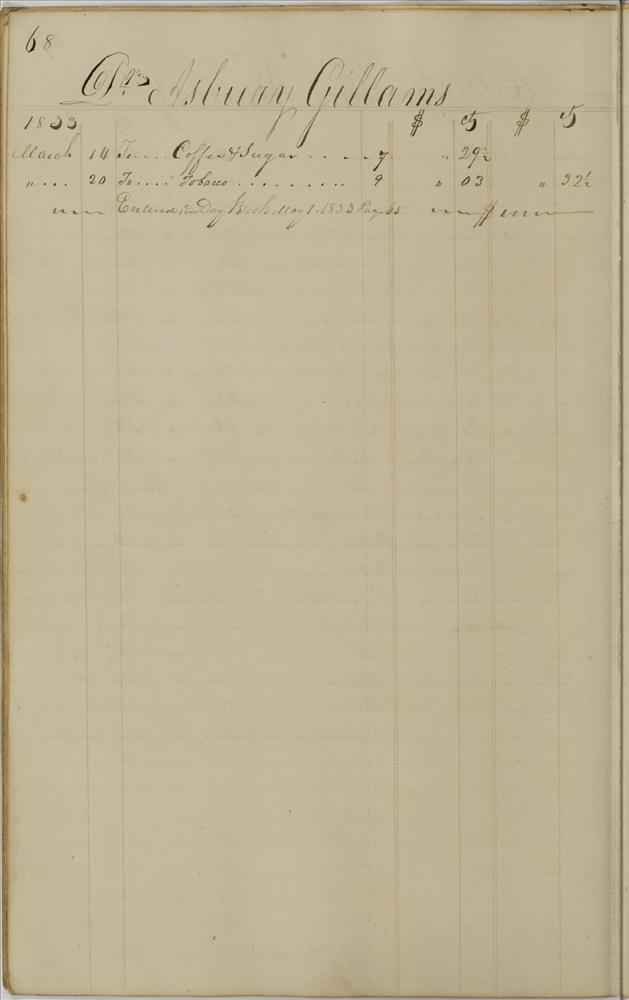 68
Dr. Asbuary Gillams
1833 $ cts $ cts
March 14 To .... Coffee & Sugar .... 7 " 29½
" ... 20 To .... Tobacco ......... 9 " 03 " 32½
Entered in Day Book May 1. 1833 Page 65 $